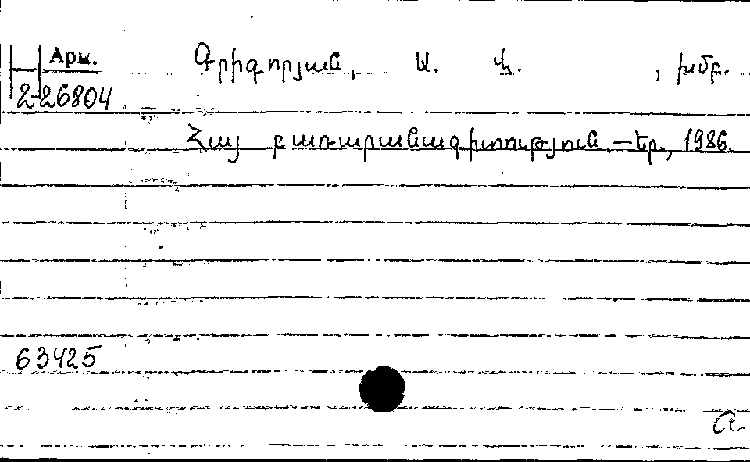 Арм. Գրիգորյան, Ա. Վ. , խմբ.
2-26804
Հայ բառարանագիտություն —Եր., 1986.
63425